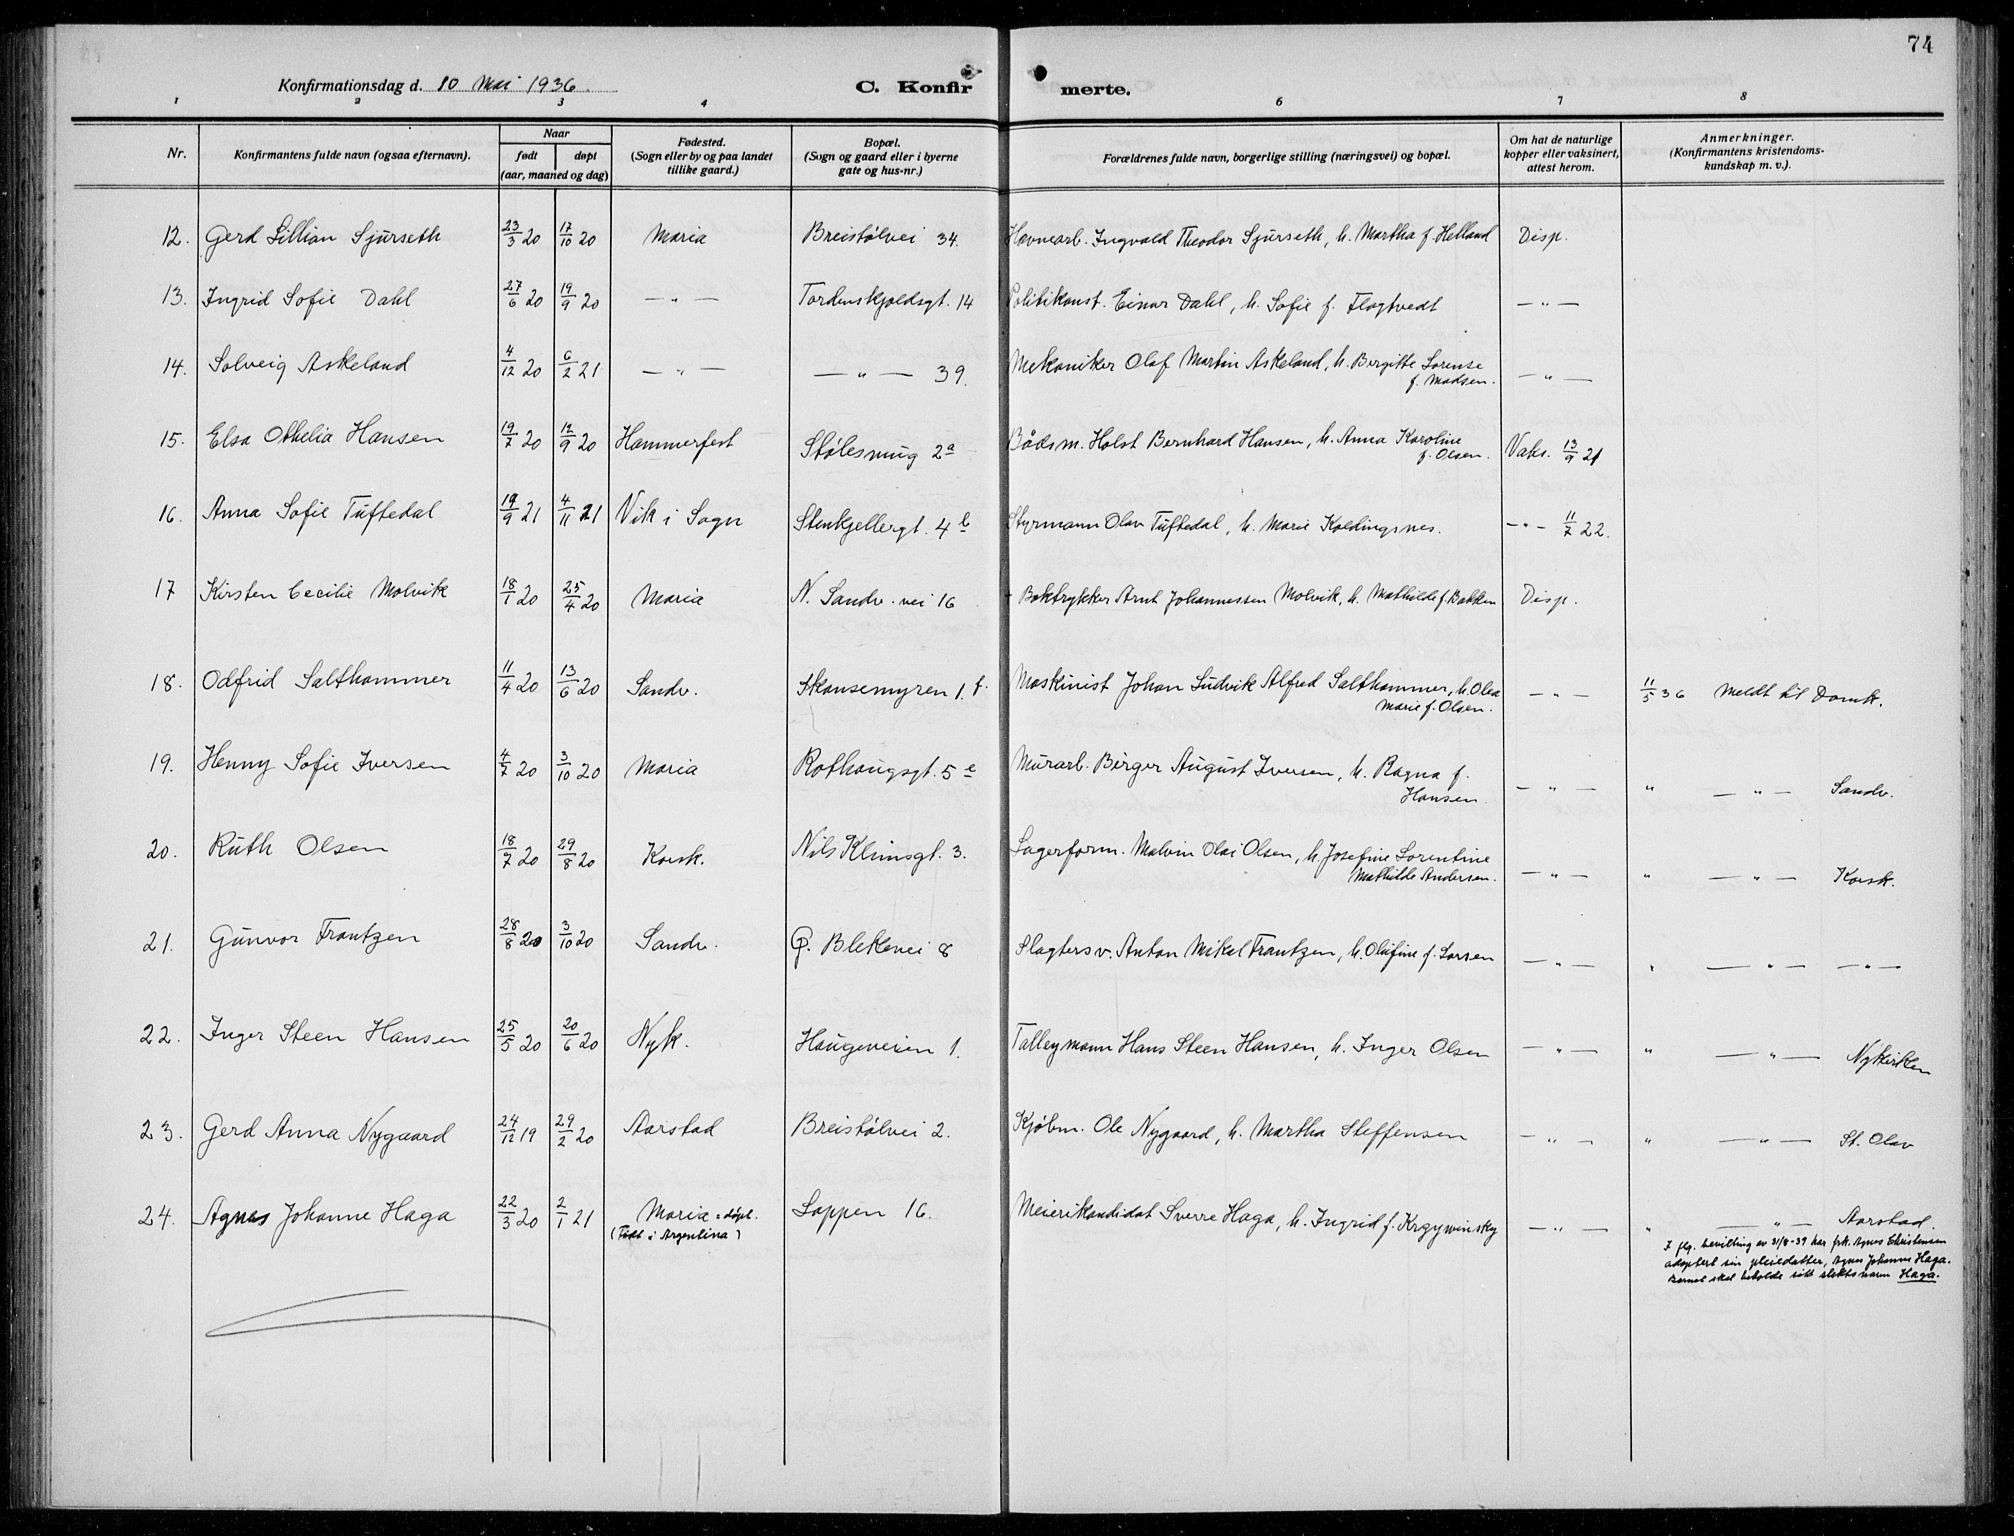 74
Konfirmationsdag d. 10 Mai 1936. C. Konfirmerte.
1 2 3 4 6 7 8
Nr.
Konfirmantens fulde navn (ogsaa efternavn).
Naar
født døpt
(aar, maaned og dag)
Fødested.
(Sogn eller by og paa landet
tillike gaard.)
Bopæl.
(Sogn og gaard eller i byerne
gate og hus-nr.)
Forældrenes fulde navn, borgerlige stilling (næringsvei) og bopæl.
Om hat de naturlige
kopper eller vaksinert,
attest herom.
Anmerkninger.
(Konfirmantens kristendoms-
kundskap m. v.).
12. Gerd Lillian Sjurseth 23/3 20 17/10 20 Maria Breistølvei 34. Havnearb. Ingvald Theodor Sjurseth, h. Martha f. Helland Disp.
13. Ingrid Sofie Dahl 27/6 20 19/9 20 — " — Tordenskjoldsgt. 14 Politikonst. Einar Dahl, h. Sofie f. Flagtvedt — " —
14. Solveig Askeland 4/12 20 6/2 21 — " — — " — 39. Mekaniker Olaf Martin Askeland, h. Birgitte Sorense
f. Madsen. — " —
15. Elsa Othelia Hansen 19/7 20 12/9 20 Hammerfest Stølesmug 2a Bådsm. Holst Bernhard Hansen, h. Anna Karoline
f. Olsen. Vaks. 13/9 21
16. Anna Sofie Tuftedal 19/9 21 4/11 21 Vik i Sogn Stenkjellergt. 4b Styrmann Olav Tuftedal, h. Marie Koldingsnes. — " — 11/7 22.
17 Kirsten Cecilie Molvik 18/1 20 25/4 20 Maria N. Sandv. vei 16 + Boktrykker Arnt Johannessen Molvik, h. Mathilde f. Bakken Disp.
18. Odfrid Salthammer 11/4 20 13/6 20 Sandv. Skansemyren 1. f. Maskinist Johan Ludvik Alfred Salthammer, h. Olea
Marie f. Olsen. — " — 11/5 36 Meldt til Domk.
19. Henny Sofie Iversen 4/7 20 3/10 20 Maria Rothaugsgt. 5e Murarb. Birger August Iversen, h. Ragna f.
Hansen. — " — " — " — Sandv.
20. Ruth Olsen 18/7 20 29/8 20 Korsk. Nils Klimsgt. 3. Lagerform. Malvin Olai Olsen, h. Josefine Lorentine
Mathilde Andersen. — " — " — " — Korsk.
21. Gunvor Frantzen 28/8 20 3/10 20 Sandv. G. Blekevei 8 Slagtersv. Anton Mikal Frantzen, h. Olufine f. Larsen — " — " — " — — " —
22. Inger Steen Hansen 25/5 20 20/6 20 Nyk. Haugeveien 1. Talleymann Hans Steen Hansen, h. Inger Olsen — " — " — " — Nykirken
23. Gerd Anna Nygaard 24/12 19 29/2 20 Aarstad Breistølvei 2. Kjøbm. Ole Nygaard, h. Martha Steffensen — " — " — " — St. Olav
24. Agnes Johanne Haga 22/3 20 2/1 21 Maria = døpt. Lappen 16. Meierikandidat Sverre Haga, h. Ingrid f. Krzywinsky — " — " — " — Aarstad.
(Født i Argentina)
I flg. bevilling av 31/8-39 har frk. Agnes Christensen
adoptert sin pleiedatter, Agnes Johanne Haga.
Barnet skal beholde sitt slektsnavn Haga.